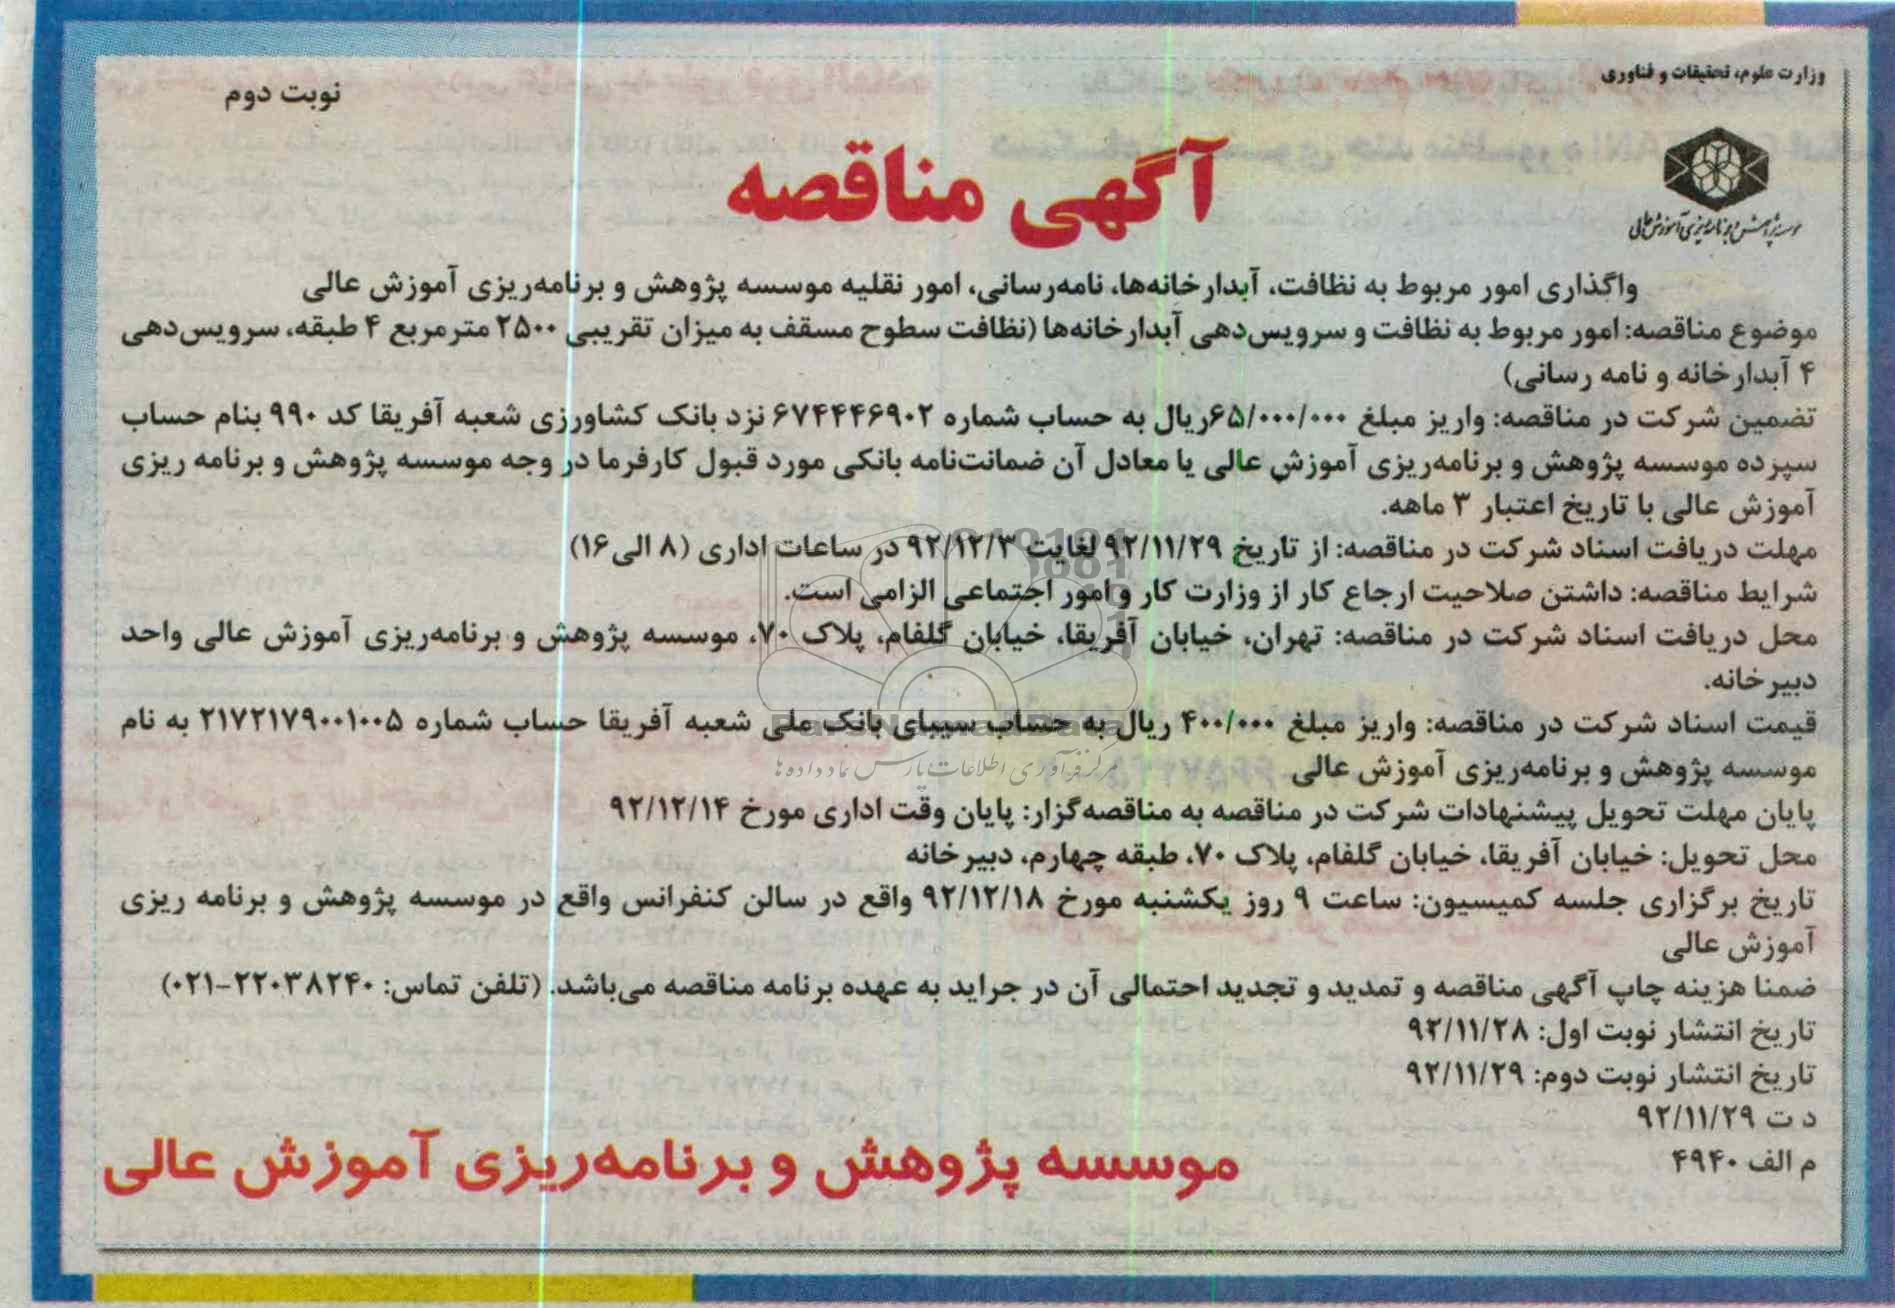 وزارت علوم، تحقیقات و فناوری
نوبت دوم
موسسه پژوهش و برنامه‌ریزی آموزش عالی
آگهی مناقصه
واگذاری امور مربوط به نظافت، آبدارخانه‌ها، نامه‌رسانی، امور نقلیه موسسه پژوهش و برنامه‌ریزی آموزش عالی
موضوع مناقصه: امور مربوط به نظافت و سرویس‌دهی آبدارخانه‌ها (نظافت سطوح مسقف به میزان تقریبی ۲۵۰۰ مترمربع ۴ طبقه، سرویس‌دهی
۴ آبدارخانه و نامه رسانی)
تضمین شرکت در مناقصه: واریز مبلغ ۶۵/۰۰۰/۰۰۰ریال به حساب شماره ۶۷۴۴۴۶۹۰۲ نزد بانک کشاورزی شعبه آفریقا کد ۹۹۰ بنام حساب
سپرده موسسه پژوهش و برنامه‌ریزی آموزش عالی یا معادل آن ضمانت‌نامه بانکی مورد قبول کارفرما در وجه موسسه پژوهش و برنامه ریزی
آموزش عالی با تاریخ اعتبار ۳ ماهه.
مهلت دریافت اسناد شرکت در مناقصه: از تاریخ ۹۲/۱۱/۲۹ لغایت ۹۲/۱۲/۳ در ساعات اداری (۸ الی۱۶)
شرایط مناقصه: داشتن صلاحیت ارجاع کار از وزارت کار و امور اجتماعی الزامی است.
محل دریافت اسناد شرکت در مناقصه: تهران، خیابان آفریقا، خیابان گلفام، پلاک ۷۰، موسسه پژوهش و برنامه‌ریزی آموزش عالی واحد
دبیرخانه.
قیمت اسناد شرکت در مناقصه: واریز مبلغ ۴۰۰/۰۰۰ ریال به حساب سیبای بانک ملی شعبه آفریقا حساب شماره ۲۱۷۲۱۷۹۰۰۱۰۰۵ به نام
موسسه پژوهش و برنامه‌ریزی آموزش عالی
پایان مهلت تحویل پیشنهادات شرکت در مناقصه به مناقصه‌گزار: پایان وقت اداری مورخ ۹۲/۱۲/۱۴
محل تحویل: خیابان آفریقا، خیابان گلفام، پلاک ۷۰، طبقه چهارم، دبیرخانه
تاریخ برگزاری جلسه کمیسیون: ساعت ۹ روز یکشنبه مورخ ۹۲/۱۲/۱۸ واقع در سالن کنفرانس واقع در موسسه پژوهش و برنامه ریزی
آموزش عالی
ضمنا هزینه چاپ آگهی مناقصه و تمدید و تجدید احتمالی آن در جراید به عهده برنامه مناقصه می‌باشد. (تلفن تماس: ۲۲۰۳۸۲۴۰-۰۲۱)
تاریخ انتشار نوبت اول: ۹۲/۱۱/۲۸
تاریخ انتشار نوبت دوم: ۹۲/۱۱/۲۹
د ت ۹۲/۱۱/۲۹
م الف ۴۹۴۰
موسسه پژوهش و برنامه‌ریزی آموزش عالی
ParsNamadData
مرکز فرآوری اطلاعات پارس نماد داده‌ها